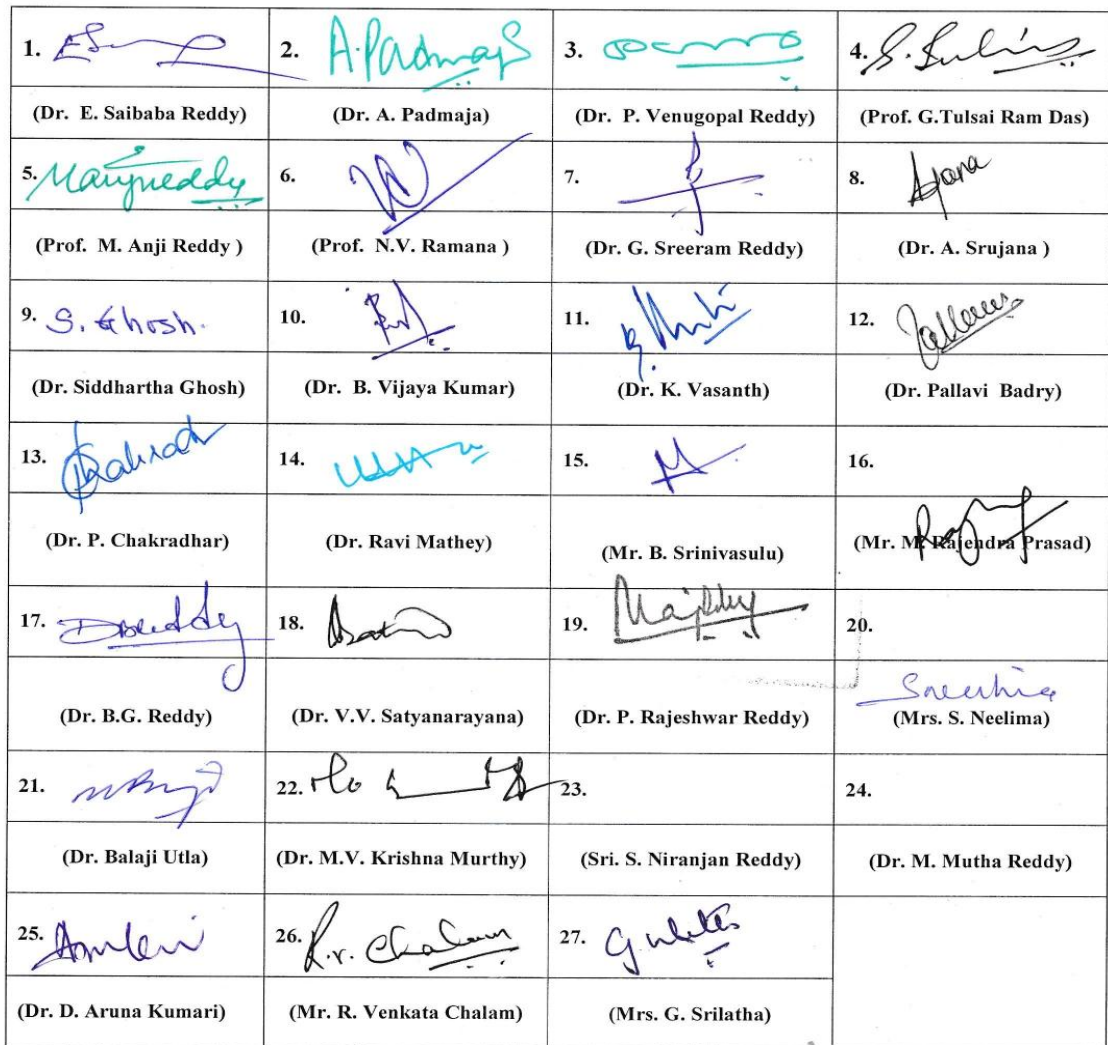 1. 2. A.Padmaja 3. 4.
(Dr. E. Saibaba Reddy) (Dr. A. Padmaja) (Dr. P. Venugopal Reddy) (Prof. G.Tulsai Ram Das)
5. 6. 7. 8.
(Prof. M. Anji Reddy ) (Prof. N.V. Ramana ) (Dr. G. Sreeram Reddy) (Dr. A. Srujana )
9. S. Ghosh. 10. 11. 12.
(Dr. Siddhartha Ghosh) (Dr. B. Vijaya Kumar) (Dr. K. Vasanth) (Dr. Pallavi Badry)
13. 14. 15. 16.
(Dr. P. Chakradhar) (Dr. Ravi Mathey) (Mr. B. Srinivasulu) (Mr. M. Rajendra Prasad)
17. 18. 19. 20.
(Dr. B.G. Reddy) (Dr. V.V. Satyanarayana) (Dr. P. Rajeshwar Reddy) (Mrs. S. Neelima)
21. 22. 23. 24.
(Dr. Balaji Utla) (Dr. M.V. Krishna Murthy) (Sri. S. Niranjan Reddy) (Dr. M. Mutha Reddy)
25. 26. R.V. Chalam 27.
(Dr. D. Aruna Kumari) (Mr. R. Venkata Chalam) (Mrs. G. Srilatha)